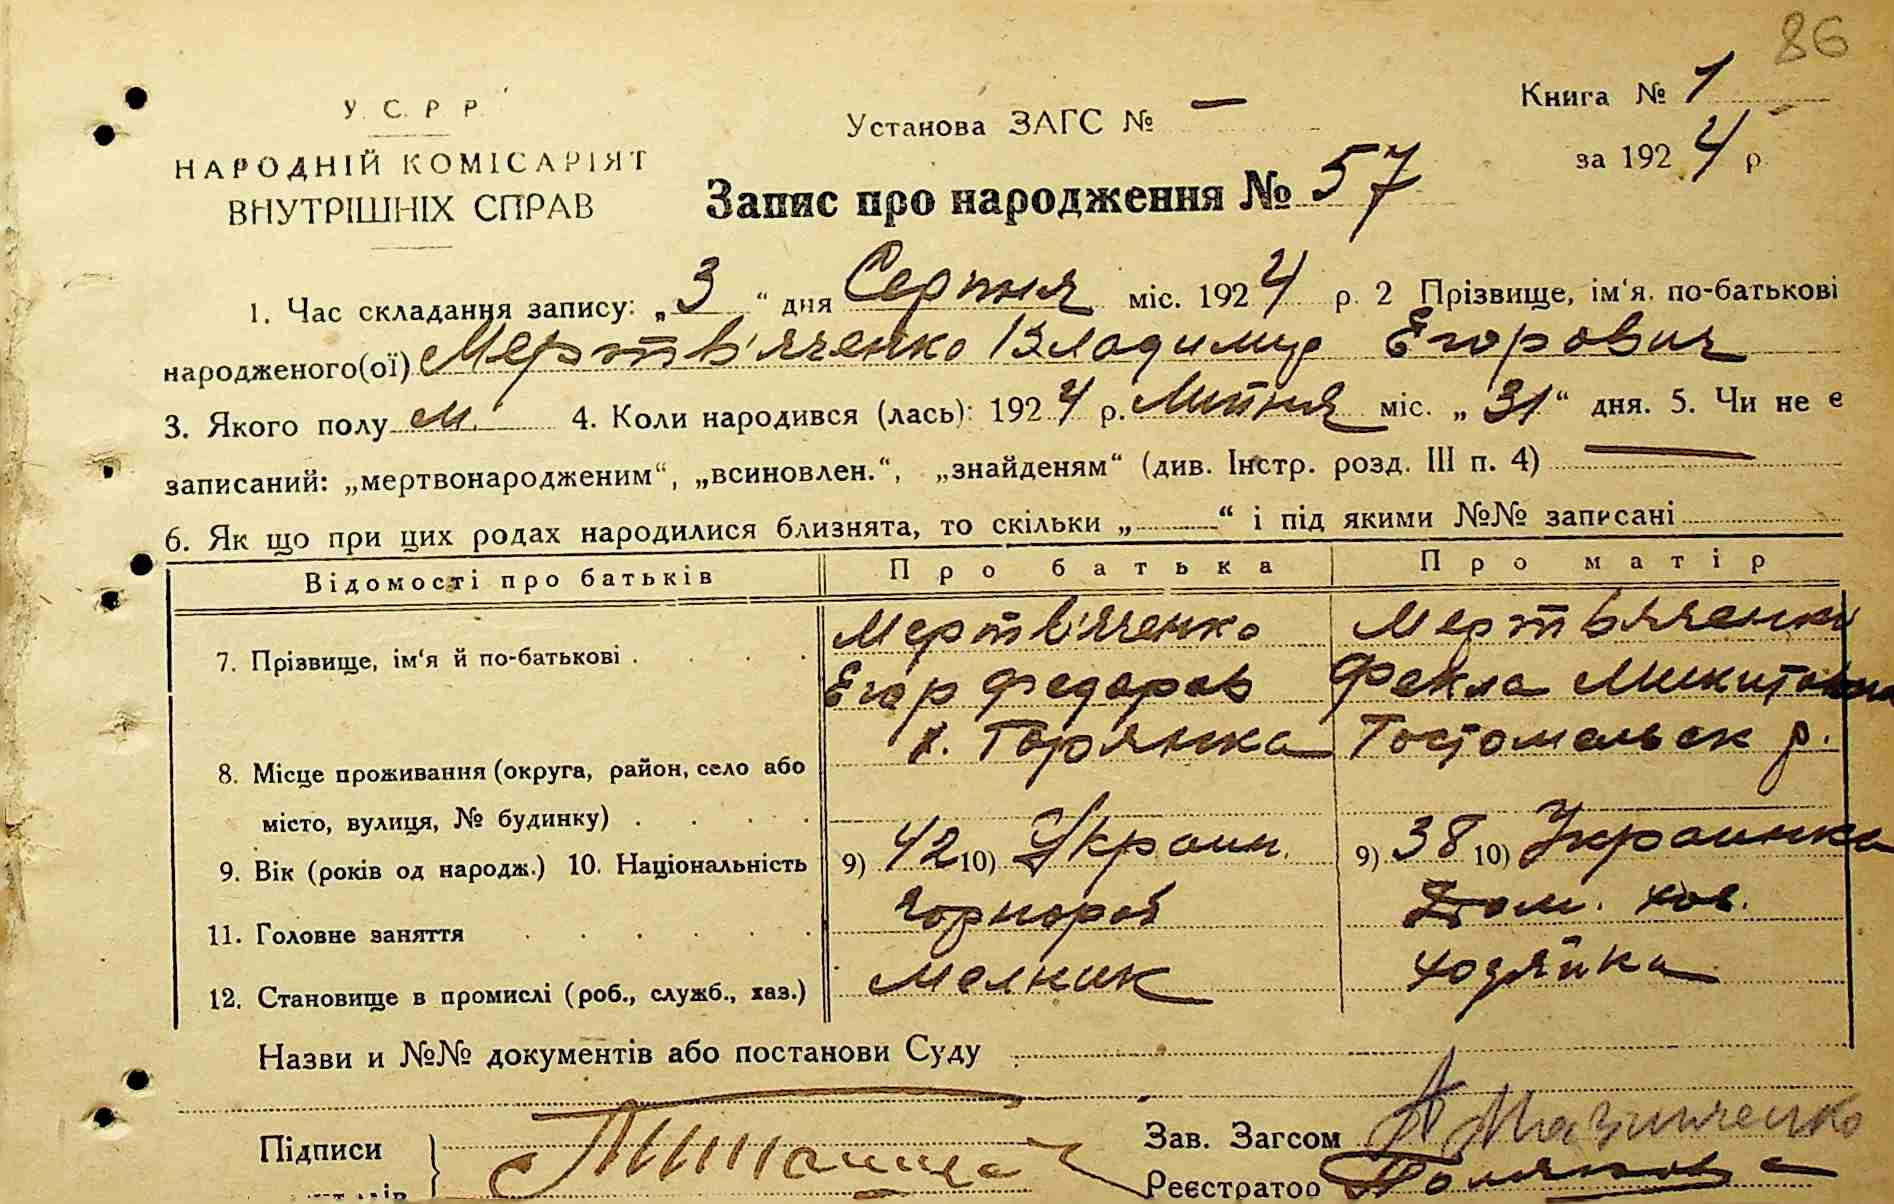 86
У. С. Р. Р.
НАРОДНІЙ КОМІСАРІЯТ
ВНУТРІШНІХ СПРАВ
Установа ЗАГС № —
Книга № 1
за 1924 р
Запис про народження № 57
1. Час складання запису: „3“ дня Серпня міс. 1924 р. 2 Прізвище, ім'я, по-батькові
народженого(ої) Мертв'яченко Владимир Егорович
3. Якого полу м. 4. Коли народився (лась): 1924 р. Липня міс. „31“ дня. 5. Чи не є
записаний: „мертвонародженим“, „всиновлен.“, „знайденям“ (див. Інстр. розд. III п. 4) —
6. Як що при цих родах народилися близнята, то скільки „ “ і під якими №№ записані
Відомості про батьків Про батька Про матір
Мертв'яченко Мертвяченко
7. Прізвище, ім'я й по-батькові Егор Федоров Фекла Микитовна
х. Горянка Гостомельск р.
8. Місце проживання (округа, район, село або
місто, вулиця, № будинку)
9. Вік (років од народж.) 10. Національність 9) 42 10) Украин. 9) 38 10) Украинка
11. Головне заняття Дом. хоз.
12. Становище в промислі (роб., служб., хаз.) Мелник хозяйка
Назви и №№ документів або постанови Суду
Підписи
Зав. Загсом
Реєстратор